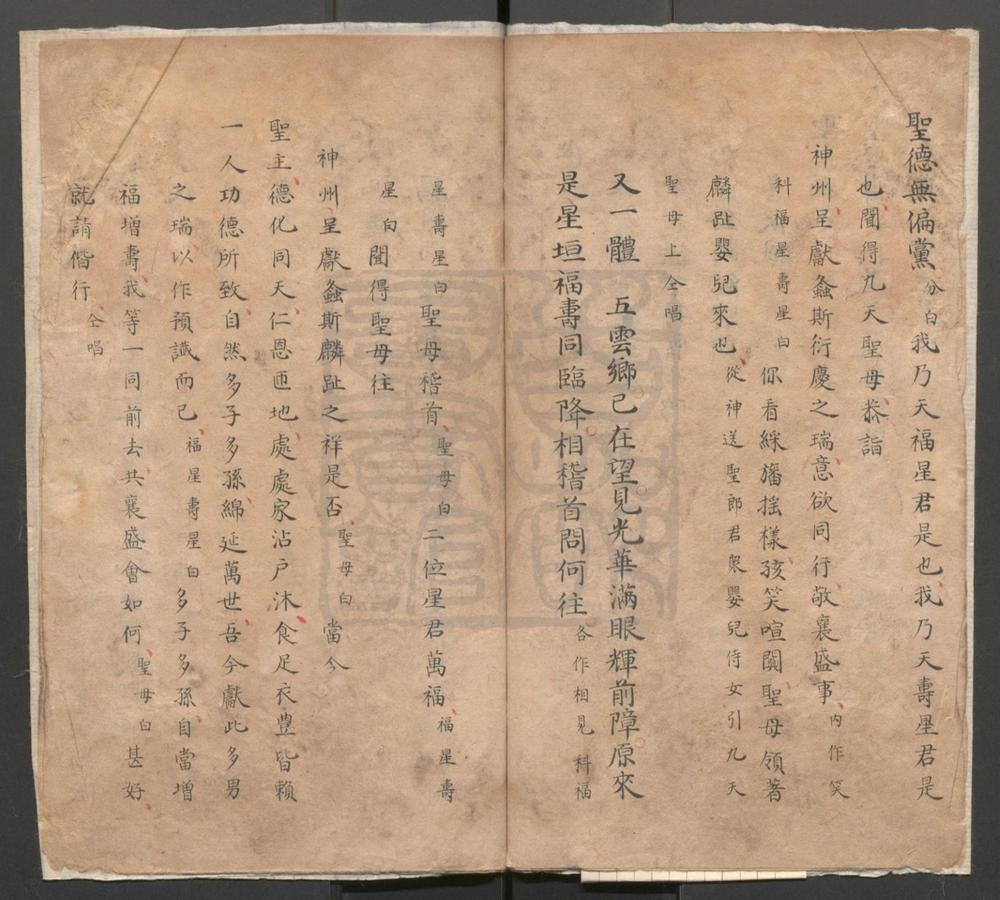 聖德無偏黨分白我乃天福星君是也我乃天壽星君是
也聞得九天聖母恭詣
神州呈獻螽斯衍慶之瑞意欲同行敬襄盛事內作笑
科福星壽星白你看綵旛搖樣孩笑喧闐聖母領著
麟趾嬰兒來也從神送聖郎君衆嬰兒侍女引九天
聖母上仝唱
又一體 五雲鄉已在望見光華滿眼輝前障原來
是星垣福壽同臨降相稽首問何往各作相見科福
星壽星白聖母稽首聖母白二位星君萬福福星壽
星白聞得聖母往
神州呈獻螽斯麟趾之祥是否聖母白當今
聖主德化同天仁恩匝地處處家沾户沐食足衣豊皆賴
一人功德所致自然多子多孫綿延萬世吾今獻此多男
之瑞以作預讖而已福星壽星白多子多孫自當增
福增壽我等一同前去共襄盛會如何聖母白甚好
就請偕行仝唱